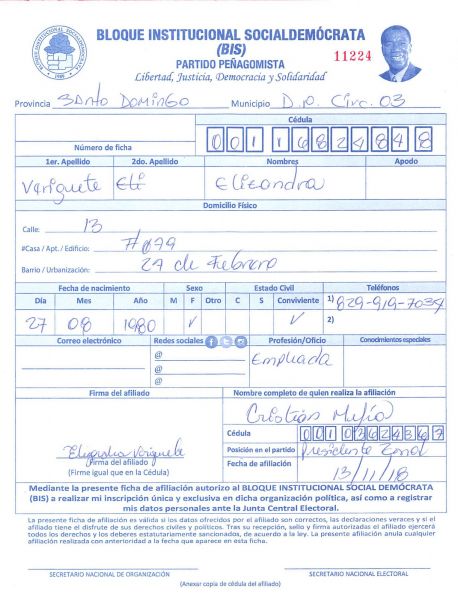 BLOQUE INSTITUCIONAL SOCIALDEMÓCRATA
(BIS)
11224
PARTIDO PEÑAGOMISTA
Libertad, Justicia, Democracia y Solidaridad
Provincia Santo Domingo Municipio D.N. Circ. 03
Cédula
Número de ficha 00116824848
1er. Apellido 2do. Apellido Nombres Apodo
Variguete Eli Elisandra
Domicilio Físico
Calle: 13
#Casa / Apt. / Edificio: #079
Barrio / Urbanización: 27 de Febrero
Fecha de nacimiento Sexo Estado Civil Teléfonos
Día Mes Año M F Otro C S Conviviente 1) 829-919-7034
27 08 1980 √ √ 2)
Correo electrónico Redes sociales Profesión/Oficio Conocimientos especiales
@ Empleada
@
@
Firma del afiliado Nombre completo de quien realiza la afiliación
Cristian Mejía
Cédula 00103624367
Posición en el partido Presidente Zonal
(Firma del afiliado)
(Firme igual que en la Cédula)
Fecha de afiliación 13/11/18
Mediante la presente ficha de afiliación autorizo al BLOQUE INSTITUCIONAL SOCIAL DEMÓCRATA
(BIS) a realizar mi inscripción única y exclusiva en dicha organización política, así como a registrar
mis datos personales ante la Junta Central Electoral.
La presente ficha de afiliación es válida si los datos ofrecidos por el afiliado son correctos, las declaraciones veraces y si el
afiliado tiene el disfrute de sus derechos civiles y políticos. Tras su recepción, sello y firma autorizadas el afiliado ejercerá
todos los derechos y los deberes estatutariamente sancionados, de acuerdo a la ley. La presente afiliación anula cualquier
afiliación realizada con anterioridad a la fecha que aparece en esta ficha.
SECRETARIO NACIONAL DE ORGANIZACIÓN SECRETARIO NACIONAL ELECTORAL
(Anexar copia de cédula del afiliado)